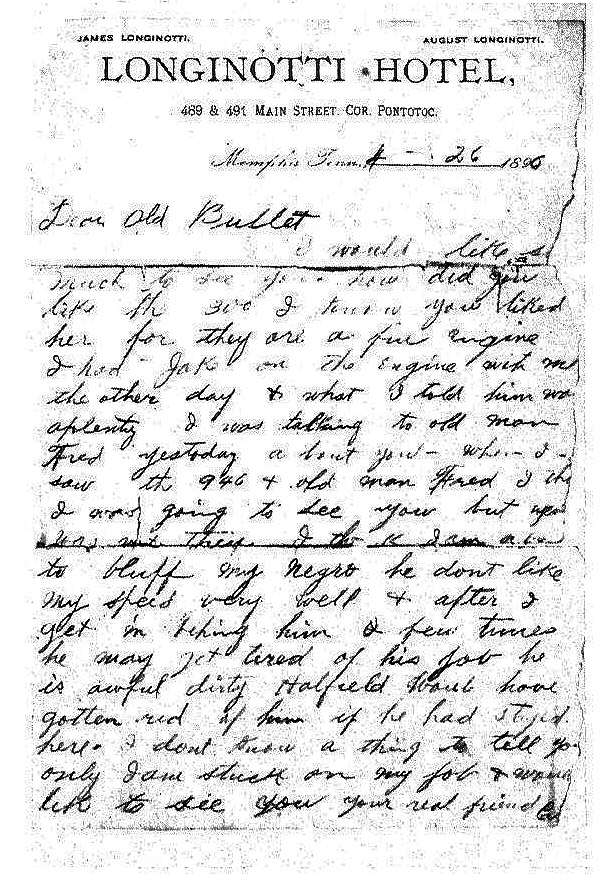 JAMES LONGINOTTI. AUGUST LONGINOTTI.
LONGINOTTI HOTEL,
489 & 491 MAIN STREET. COR. PONTOTOC.
Memphis Tenn. 4 - 26 1896
Dear Old Bullet
I would like so
much to see you. how did you
like th 300 I know you liked
her for they are a fine Engine
I had Jake on the Engine with me
the other day & what I told him was
aplenty I was talking to old man
Fred yestoday about you - when I
saw th 946 & old man Fred I
I was going to see you but you
was not there. I I am
to bluff my negro he dont like
my speed very well & after I
get in him a few times
he may get tired of his job he
is awful dirty Hatfield have
gotten rid of him if he had stayed
here. I dont know a thing to tell you
only I am stuck on my job & would
lik to see you your real friend